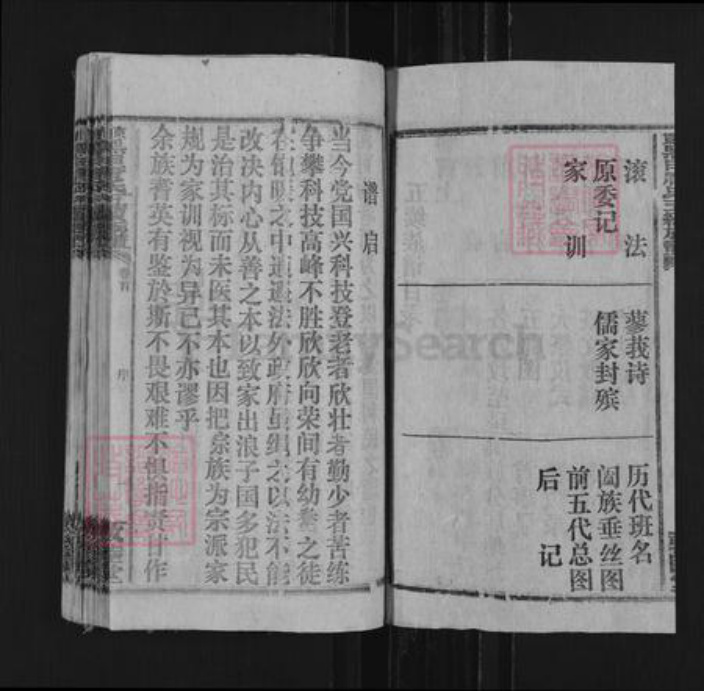 滚法
原委记
家训
蓼莪诗
儒家封殡
历代班名
阖族垂丝图
前五代总图
后记
谱启
当今党国兴科技登老者欣壮者勤少者苦练
争攀科技高峰不胜欣欣向荣间有幼鰲之徒
在饱暖之中逍遥法外政府虽绳之以法不能
改决内心从善之本以致家出浪子国多犯民
是治其标而未医其本也因把宗族为宗派家
规为家训视为异己不亦谬乎
余族耆英有鉴於斯不畏艰难不惧指责甘作
卷首
序